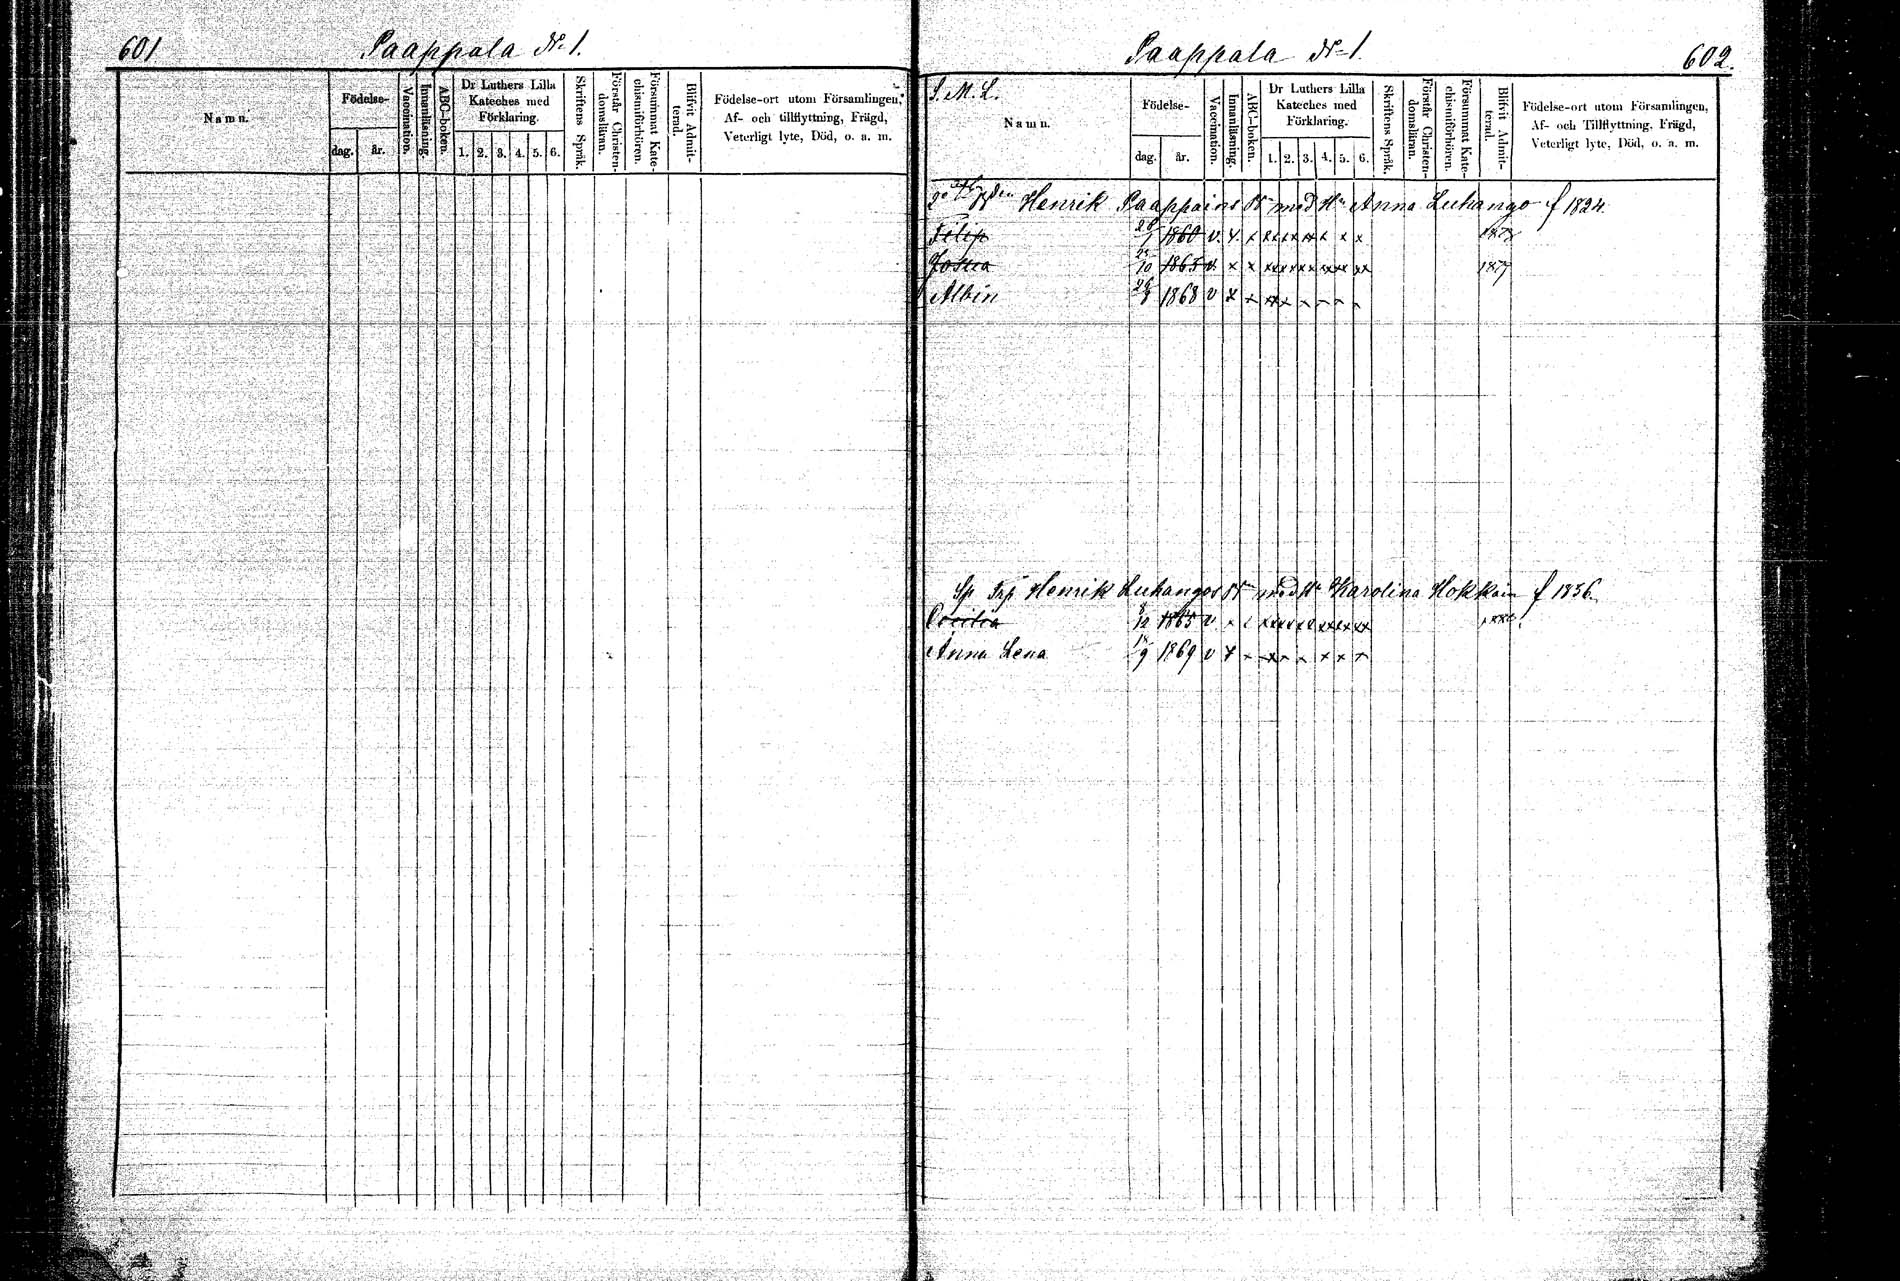 601 Paappala No 1.
Namn. Födelse- dag. år. Vaccination. Innanläsning. ABC-boken. Dr Luthers Lilla Kateches med Förklaring. 1. 2. 3. 4. 5. 6. Skriftens Språk. Förstår Christendomsläran. Försummat Katechismiförhören. Blifvit Admitterad. Födelse-ort utom Församlingen, Af- och tillflyttning, Frägd, Veterligt lyte, Död, o. a. m.
Paappala No 1. 602.
S. M. L.
Namn. Födelse- dag. år. Vaccination. Innanläsning. ABC-boken. Dr Luthers Lilla Kateches med Förklaring. 1. 2. 3. 4. 5. 6. Skriftens Språk. Förstår Christendomsläran. Försummat Katechismiförhören. Blifvit Admitterad. Födelse-ort utom Församlingen, Af- och Tillflyttning, Frägd, Veterligt lyte, Död, o. a. m.
Henrik Paappains Bn med Hu Anna Luhango f 1824.
Filip 28/1 1860 v. x x x x x x x x x
Josua 10 1865 v. x x xx xx xx xxx xx 1879
Albin 8 1868 v x x xx
Sp Trp Henrik Luhangos Bn med Hu Karolina Hokkain f 1836.
Cecilia 8/12 1865 v. x x x x x x x x x x x x
Anna Lena 9 1869 v x x x x x x x x